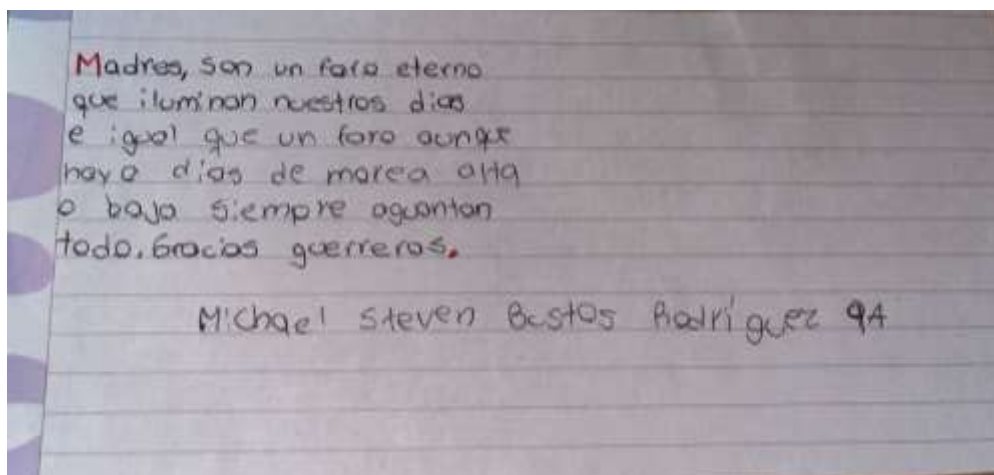 Madres, son un faro eterno
que iluminan nuestros dias
e igual que un faro aunque
haya dias de marea alta
o baja siempre aguantan
todo. Gracias guerreras.
Michael Steven Bustos Rodríguez 9A